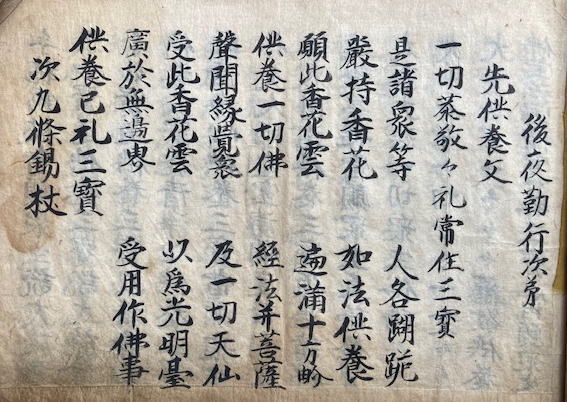 後夜勤行次㐧
先供養文
一切恭敬々礼常住三寳
是諸衆等　人各䠒跪
嚴持香花　如法供養
願此香花雲　遍滿十方畍
供養一切佛　經法并菩薩
聲聞縁覺衆　及一切天仙
受此香花雲　以爲光明臺
廣於無邊界　受用作佛事
供養已礼三寳
次九條錫杖